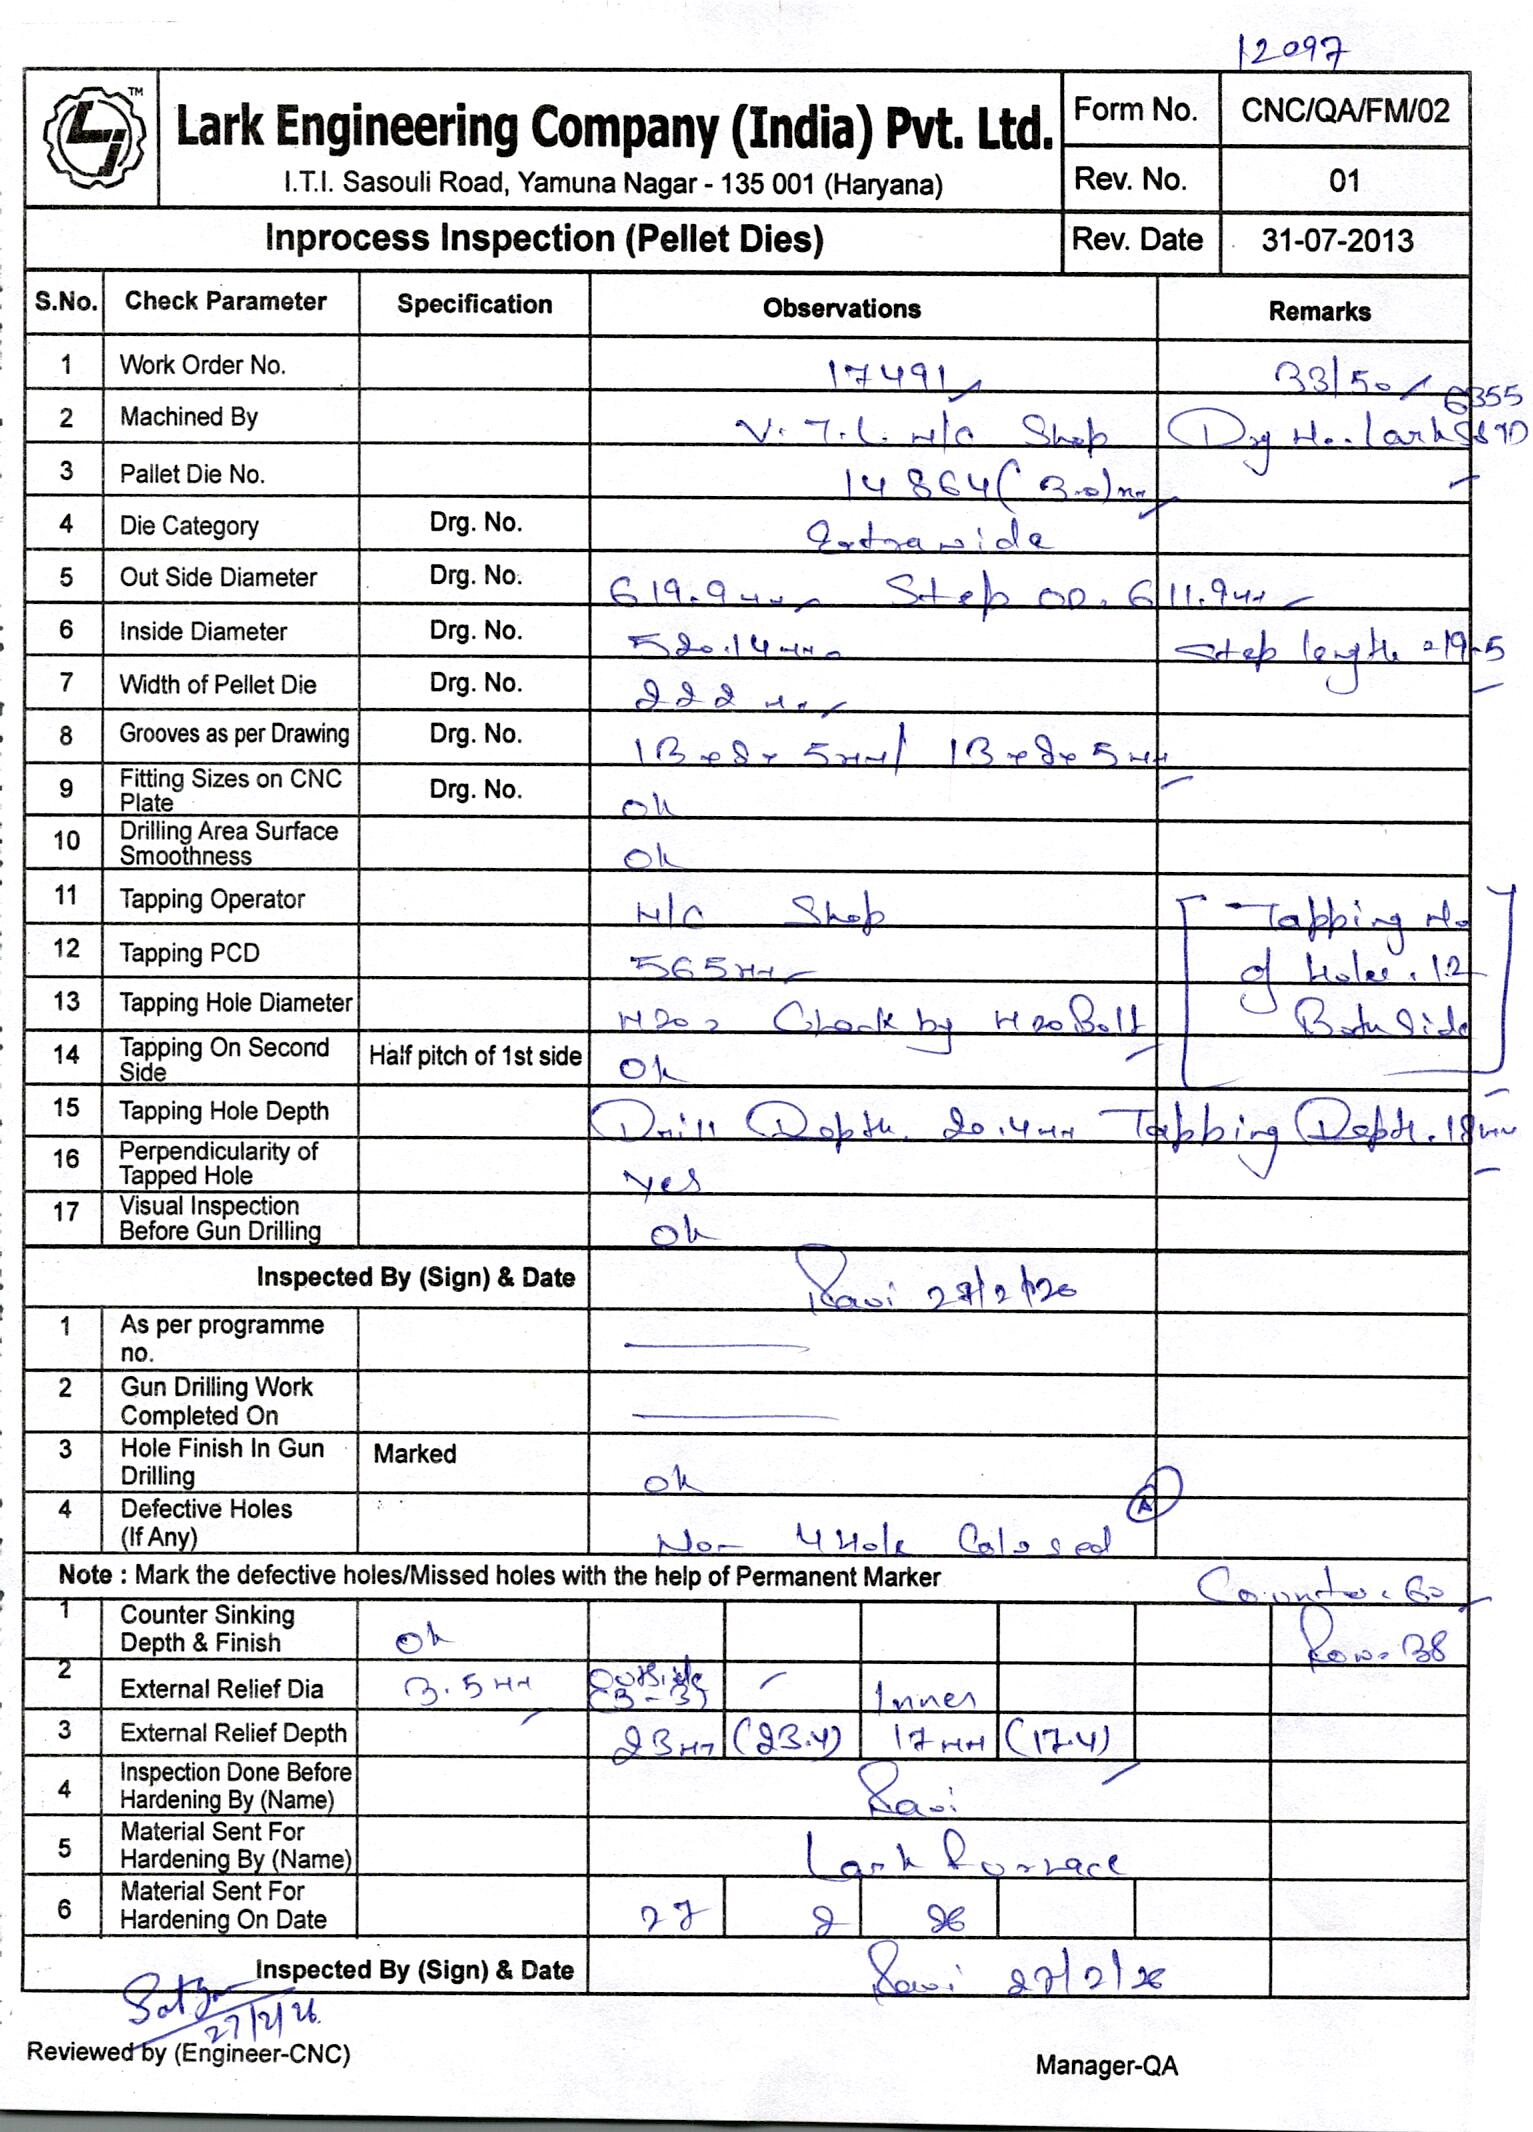 12097
TM
Lark Engineering Company (India) Pvt. Ltd.
I.T.I. Sasouli Road, Yamuna Nagar - 135 001 (Haryana)
Form No. CNC/QA/FM/02
Rev. No. 01
Inprocess Inspection (Pellet Dies) Rev. Date 31-07-2013
S.No. Check Parameter Specification Observations Remarks
1 Work Order No. 17491 33/50
6355
2 Machined By V.T.L. M/C Shop Drg No. Lark
3 Pallet Die No. 14864 (3.0) mm
4 Die Category Drg. No. Extra wide
5 Out Side Diameter Drg. No. 619.9 mm Step OD. 611.9 mm
6 Inside Diameter Drg. No. 520.14 mm Step length = 19.5
7 Width of Pellet Die Drg. No. 222 mm
8 Grooves as per Drawing Drg. No. 13 x 8 x 5mm / 13 x 8 x 5mm
9 Fitting Sizes on CNC Plate Drg. No. Ok
10 Drilling Area Surface Smoothness Ok
11 Tapping Operator M/C Shop Tapping No
12 Tapping PCD 565mm of Holes. 12
13 Tapping Hole Diameter M20 Check by M20 Bolt Both Side
14 Tapping On Second Side Half pitch of 1st side Ok
15 Tapping Hole Depth Drill Depth. 20.4mm Tapping Depth. 18mm
16 Perpendicularity of Tapped Hole Yes
17 Visual Inspection Before Gun Drilling Ok
Inspected By (Sign) & Date Ravi 27/2/26
1 As per programme no.
2 Gun Drilling Work Completed On
3 Hole Finish In Gun Drilling Marked Ok
4 Defective Holes (If Any) No- 4 Hole Colosed A
Note : Mark the defective holes/Missed holes with the help of Permanent Marker Counter. 60
1 Counter Sinking Depth & Finish Ok Row. 38
2 External Relief Dia 3.5mm Outside (3-3) Inner
3 External Relief Depth 23mm (23.4) 17mm (17.4)
4 Inspection Done Before Hardening By (Name) Ravi
5 Material Sent For Hardening By (Name) Lark Furnace
6 Material Sent For Hardening On Date 27 2 26
Inspected By (Sign) & Date Ravi 27/2/26
27/2/26
Reviewed by (Engineer-CNC)
Manager-QA